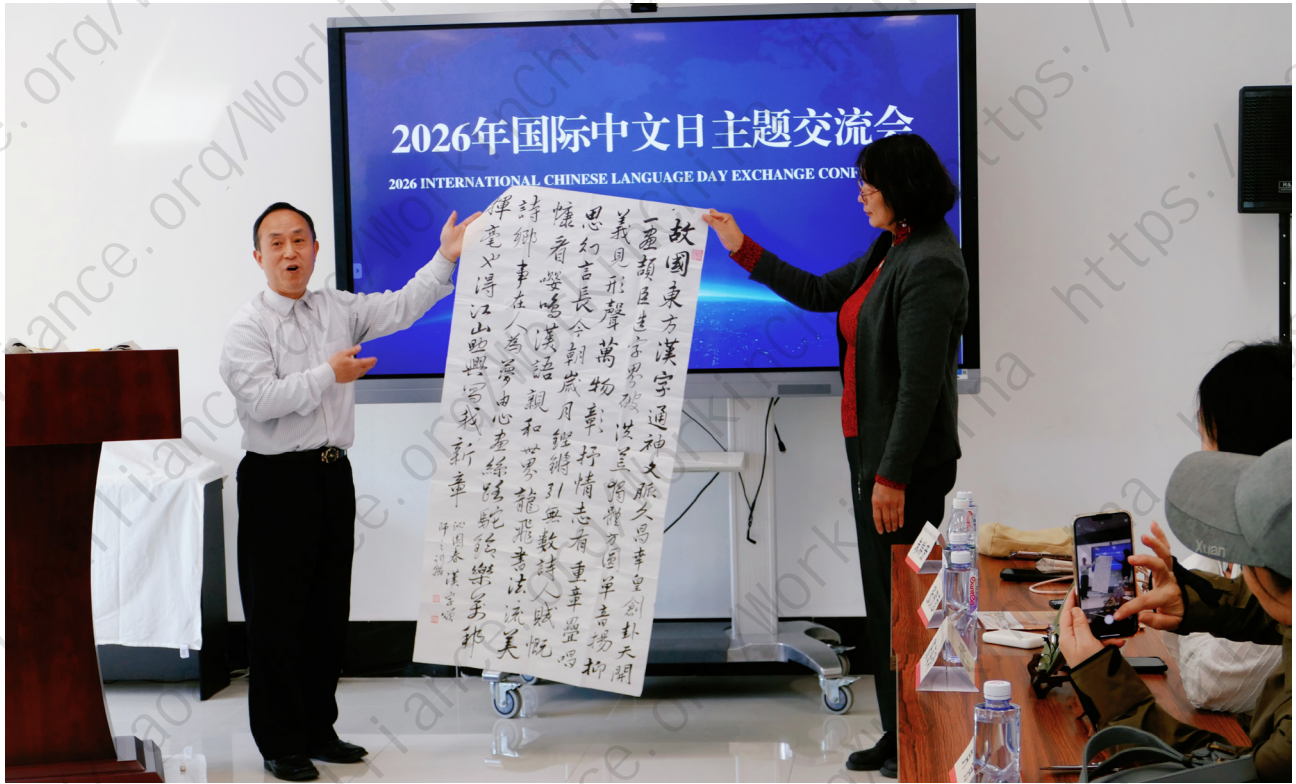 2026年国际中文日主题交流会
2026 INTERNATIONAL CHINESE LANGUAGE DAY EXCHANGE CONF
故國東方漢字通神文脈久昌 皇畫卦天開
一畫頡臣造字界破洪荒獨體方圓單音揚抑
義見形聲萬物彰抒情志看重章疊唱
思幻言長今朝歲月鏗鏘引無數詩心賦慨
慷看嚶鳴漢語親和世界龍飛書法流美
詩鄉事在人為夢由心畫絲路駝鈴樂萬邦
揮毫也得江山助興寫我新章
沁園春漢字頌
Xuan
iance.org/WorkinChina
https://